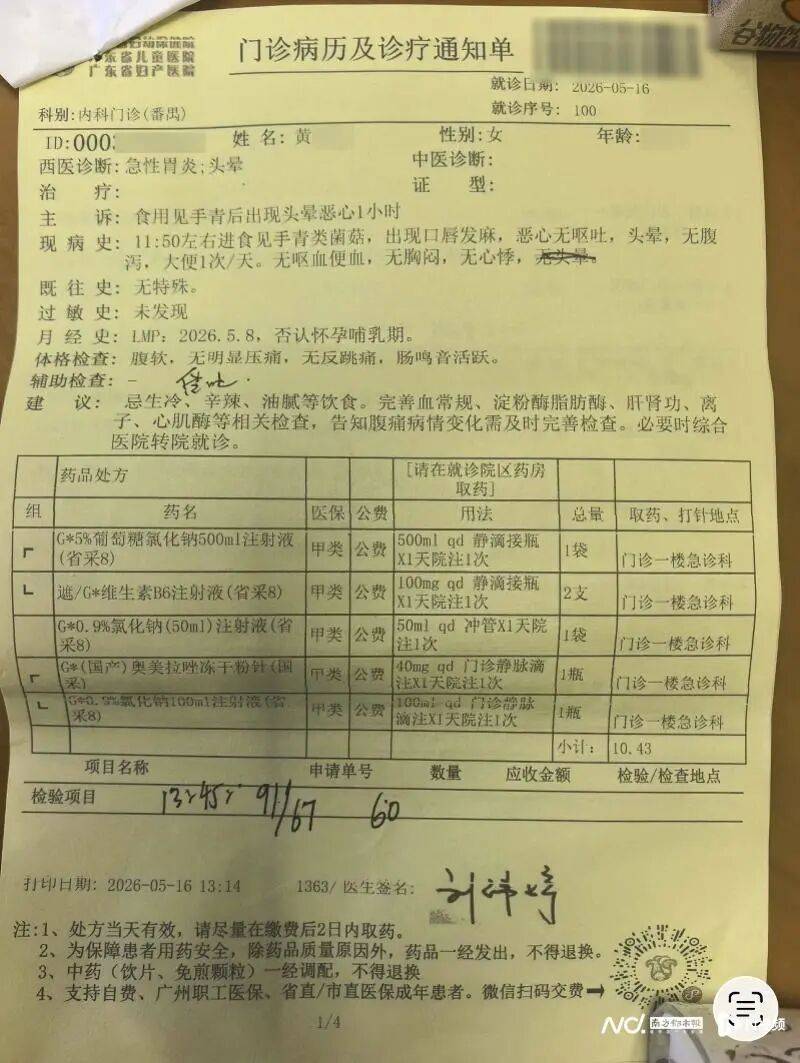 东省儿童医院
广东省妇产医院
门诊病历及诊疗通知单
谷物饮
就诊日期: 2026-05-16
科别:内科门诊(番禺)
就诊序号: 100
ID:000
姓 名: 黄
性别:女
年龄:
西医诊断: 急性胃炎;头晕
中医诊断:
治 疗:
证 型:
主 诉: 食用见手青后出现头晕恶心1小时
现 病 史: 11:50左右进食见手青类菌菇，出现口唇发麻，恶心无呕吐，头晕，无腹
泻，大便1次/天。无呕血便血，无胸闷，无心悸，无头晕。
既 往 史: 无特殊。
过 敏 史: 未发现
月 经 史: LMP: 2026.5.8，否认怀孕哺乳期。
体格检查: 腹软，无明显压痛，无反跳痛，肠鸣音活跃。
辅助检查: -
建 议: 忌生冷、辛辣、油腻等饮食。完善血常规、淀粉酶脂肪酶、肝肾功、离
子、心肌酶等相关检查，告知腹痛病情变化需及时完善检查。必要时综合
医院转院就诊。
药品处方 [请在就诊院区药房
取药]
组 药名 医保 公费 用法 总量 取药、打针地点
G*5%葡萄糖氯化钠500ml注射液 甲类 公费 500ml qd 静滴接瓶 1袋 门诊一楼急诊科
(省采8) X1天院注1次
遮/G*维生素B6注射液(省采8) 甲类 公费 100mg qd 静滴接瓶 2支 门诊一楼急诊科
X1天院注1次
G*0.9%氯化钠(50ml)注射液(省 甲类 公费 50ml qd 冲管X1天院 1袋 门诊一楼急诊科
采8) 注1次
G*(国产)奥美拉唑冻干粉针(国 甲类 公费 40mg qd 门诊静脉滴 1瓶 门诊一楼急诊科
采) 注X1天院注1次
G*0.9%氯化钠100ml注射液(省 甲类 公费 100ml qd 门诊静脉 1瓶 门诊一楼急诊科
采8) 滴注X1天院注1次
小计: 10.43
项目名称 申请单号 数量 应收金额 检验/检查地点
检验项目
91/67 60
打印日期: 2026-05-16 13:14 1363/ 医生签名:
注:1、处方当天有效，请尽量在缴费后2日内取药。
2、为保障患者用药安全，除药品质量原因外，药品一经发出，不得退换。
3、中药（饮片、免煎颗粒）一经调配，不得退换
4、支持自费、广州职工医保、省直/市直医保成年患者。微信扫码交费→
1/4
N 南方都市报
频